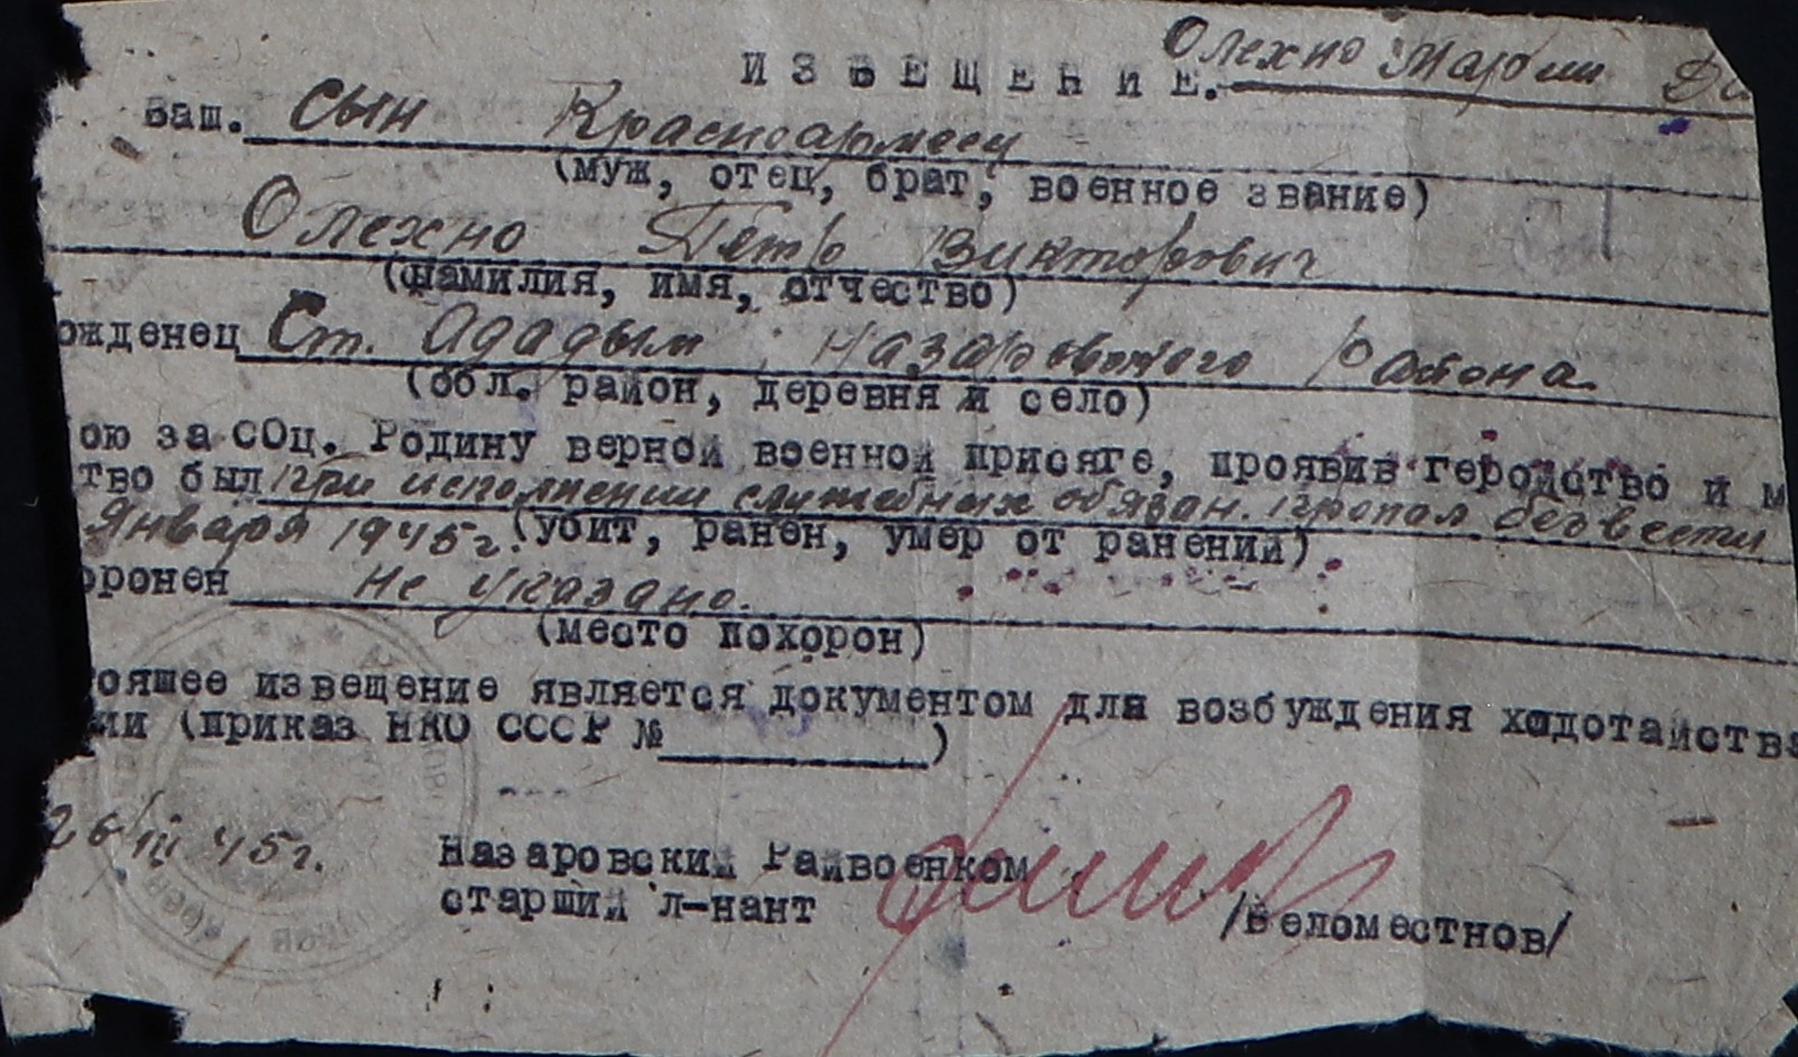 Олехно Марии
ИЗВЕЩЕНИЕ.
Ваш. сын Красноармеец
(муж, отец, брат, военное звание)
Олехно Петр Викторович
(фамилия, имя, отчество)
ожденец Ст. Ададым Назаровского района
(обл. район, деревня и село)
ою за СОц. Родину верной военной присяге, проявив геройство и м
тво был при исполнении служебных обязан. пропал без вести
Января 1945 г. (убит, ранен, умер от ранений)
оронен не указано.
(место похорон)
тоящее извещение является документом для возбуждения ходотайства
ии (приказ НКО СССР № )
26/III 45 г.
Назаровский Райвоенком
старший л-нант /Беломестнов/